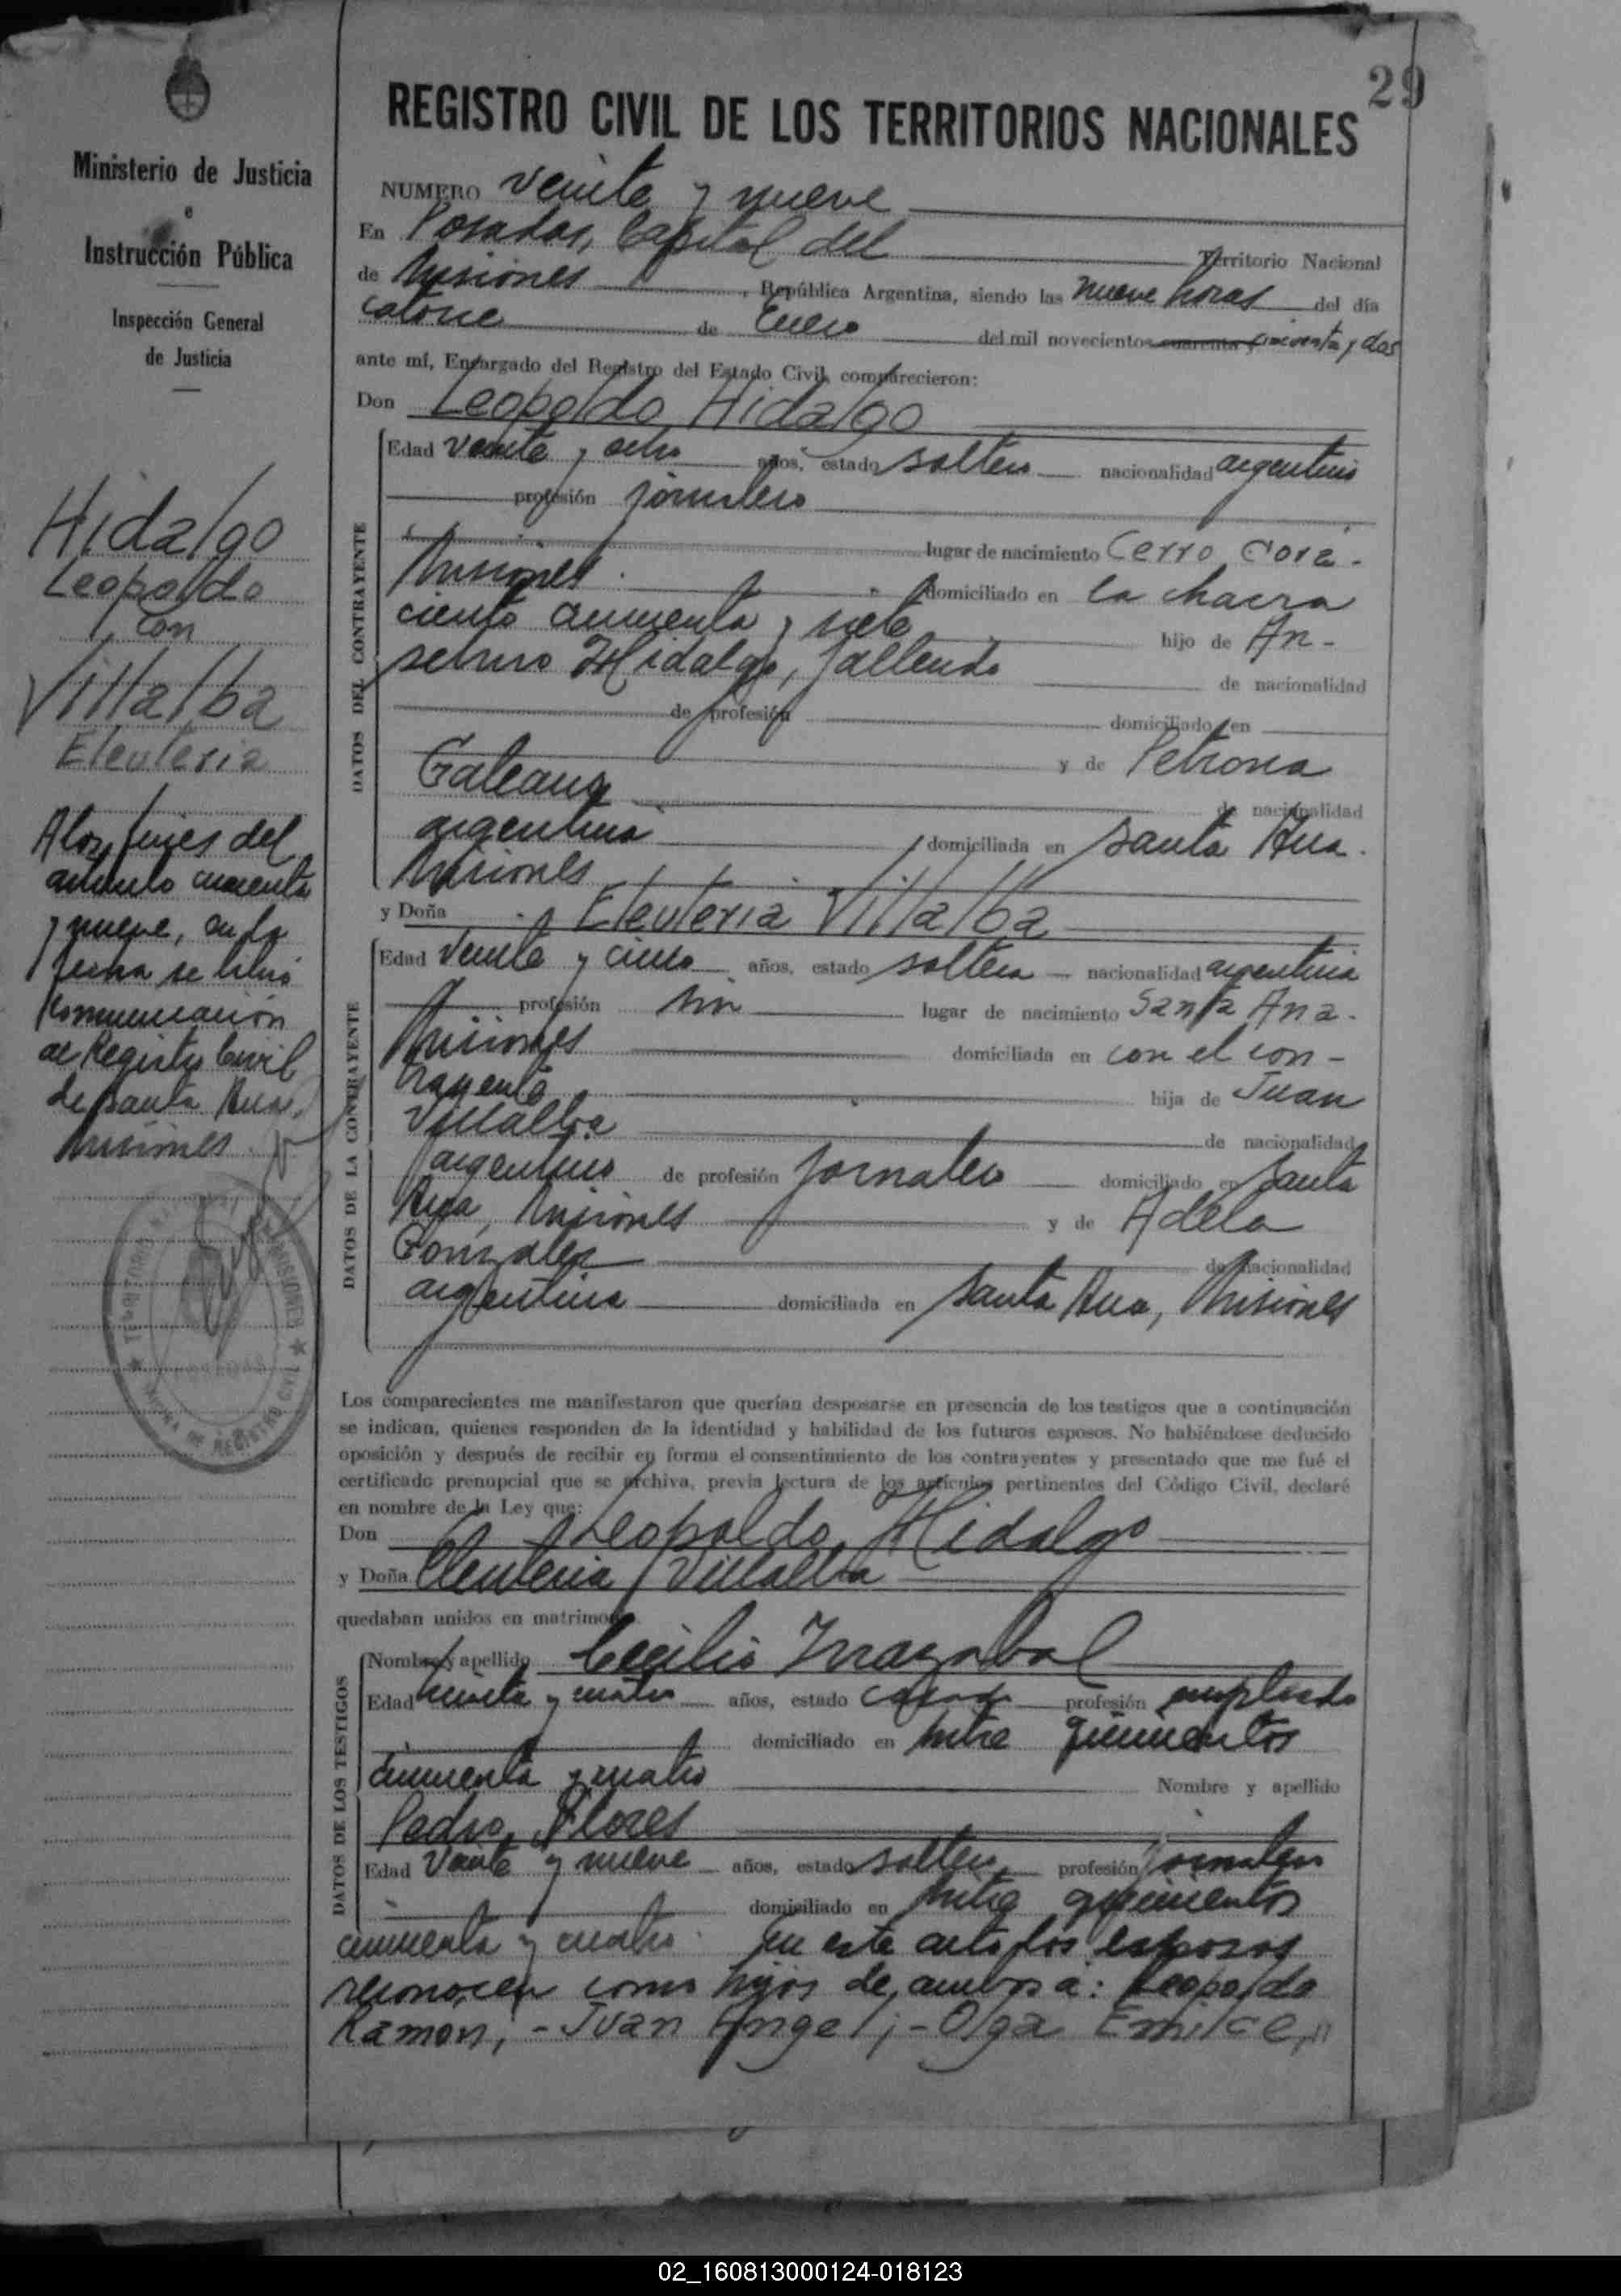 29
Ministerio de Justicia
e
Instrucción Pública
Inspección General
de Justicia
Hidalgo
Leopoldo
con
Villalba
Eleuteria
A los fines del
artículo cuarenta
y nueve, en la
fecha se libró
comunicación
al Registro Civil
de Santa Ana,
Misiones.
REGISTRO CIVIL DE LOS TERRITORIOS NACIONALES
NUMERO veinte y nueve
En Posadas, Capital del Territorio Nacional
de Misiones, República Argentina, siendo las nueve horas del día
catorce de Enero del mil novecientos cuarenta y cincuenta y dos
ante mí, Encargado del Registro del Estado Civil, comparecieron:
Don Leopoldo Hidalgo
DATOS DEL CONTRAYENTE
Edad veinte y ocho años, estado soltero nacionalidad argentino
profesión jornalero
lugar de nacimiento Cerro Corá-
Misiones. domiciliado en la chacra
ciento cincuenta y siete hijo de An-
selmo Hidalgo, fallecido de nacionalidad
de profesión domiciliado en
y de Petrona
Galeano de nacionalidad
argentina domiciliada en Santa Ana.
Misiones
y Doña Eleuteria Villalba
DATOS DE LA CONTRAYENTE
Edad veinte y cinco años, estado soltera nacionalidad argentina
profesión sin lugar de nacimiento Santa Ana.
Misiones domiciliada en con el con-
trayente hija de Juan
Villalba de nacionalidad
argentino de profesión jornalero domiciliado en Santa
Ana, Misiones y de Adela
Gonzalez de nacionalidad
argentina domiciliada en Santa Ana, Misiones
Los comparecientes me manifestaron que querían desposarse en presencia de los testigos que a continuación
se indican, quienes responden de la identidad y habilidad de los futuros esposos. No habiéndose deducido
oposición y después de recibir en forma el consentimiento de los contrayentes y presentado que me fué el
certificado prenupcial que se archiva, previa lectura de los artículos pertinentes del Código Civil, declaré
en nombre de la Ley que:
Don Leopoldo Hidalgo
y Doña Eleuteria Villalba
quedaban unidos en matrimonio.
DATOS DE LOS TESTIGOS
Nombre y apellido Cecilio Irrazabal
Edad treinta y cuatro años, estado casado profesión empleado
domiciliado en Mitre quinientos
cincuenta y cuatro Nombre y apellido
Pedro Flores
Edad veinte y nueve años, estado soltero profesión jornalero
domiciliado en Mitre quinientos
cincuenta y cuatro. En este acto los esposos
reconocen como hijos de ambos a: Leopoldo
Ramón; - Juan Angel; - Olga Emilce,
02_160813000124-018123